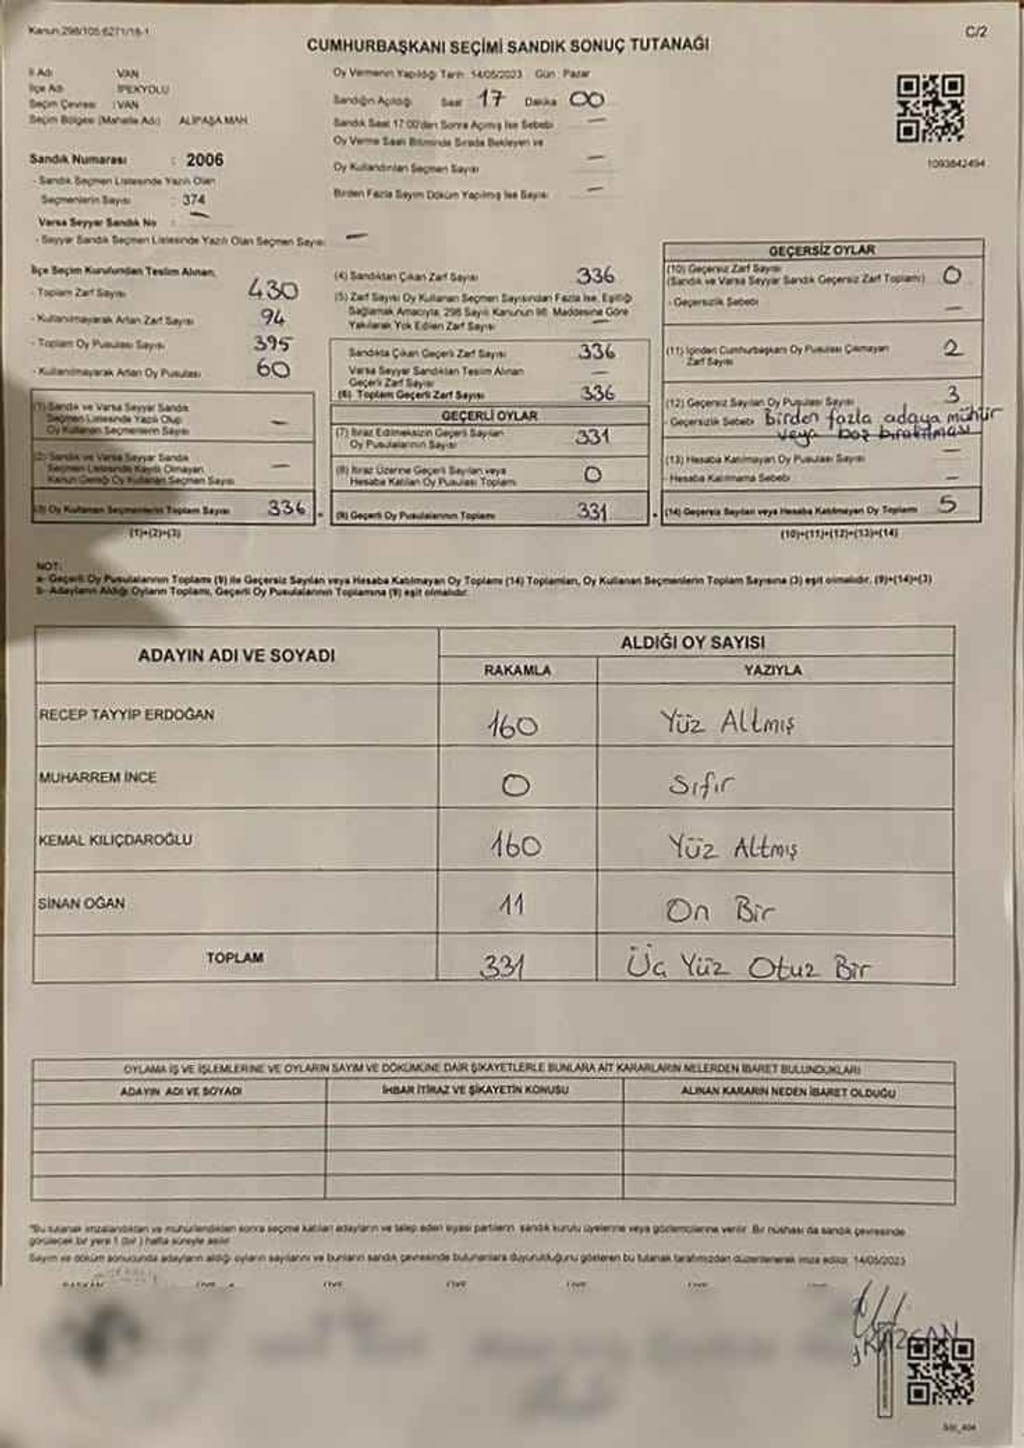 Kanun 298/105 6271/18-1
C/2
CUMHURBAŞKANI SEÇİMİ SANDIK SONUÇ TUTANAĞI
İl Adı VAN
İlçe Adı İPEKYOLU
Seçim Çevresi : VAN
Seçim Bölgesi (Mahalle Adı) ALİPAŞA MAH
Sandık Numarası : 2006
- Sandık Seçmen Listesinde Yazılı Olan
Seçmenlerin Sayısı : 374
Varsa Seyyar Sandık No : —
- Seyyar Sandık Seçmen Listesinde Yazılı Olan Seçmen Sayısı —
Oy Vermenin Yapıldığı Tarih 14/05/2023 Gün : Pazar
Sandığın Açıldığı Saat 17 Dakika 00
Sandık Saat 17:00'den Sonra Açılmış İse Sebebi —
Oy Verme Saati Bitiminde Sırada Bekleyen ve
Oy Kullandırılan Seçmen Sayısı —
Birden Fazla Sayım Döküm Yapılmış İse Sayısı —
1093842494
İlçe Seçim Kurulundan Teslim Alınan,
- Toplam Zarf Sayısı 430
- Kullanılmayarak Artan Zarf Sayısı 94
- Toplam Oy Pusulası Sayısı 395
- Kullanılmayarak Artan Oy Pusulası 60
(1) Sandık ve Varsa Seyyar Sandık
Seçmen Listesinde Yazılı Olup
Oy Kullanan Seçmenlerin Sayısı —
(2) Sandık ve Varsa Seyyar Sandık
Seçmen Listesinde Kaydı Olmayan
Kanun Gereği Oy Kullanan Seçmen Sayısı —
(3) Oy Kullanan Seçmenlerin Toplam Sayısı 336
(1)+(2)=(3)
(4) Sandıktan Çıkan Zarf Sayısı 336
(5) Zarf Sayısı Oy Kullanan Seçmen Sayısından Fazla İse, Eşitliği
Sağlamak Amacıyla, 298 Sayılı Kanunun 98. Maddesine Göre
Yakılarak Yok Edilen Zarf Sayısı —
Sandıkta Çıkan Geçerli Zarf Sayısı 336
Varsa Seyyar Sandıktan Teslim Alınan
Geçerli Zarf Sayısı —
(6) Toplam Geçerli Zarf Sayısı 336
GEÇERLİ OYLAR
(7) İtiraz Edilmeksizin Geçerli Sayılan
Oy Pusulalarının Sayısı 331
(8) İtiraz Üzerine Geçerli Sayılan veya
Hesaba Katılan Oy Pusulası Toplamı 0
(9) Geçerli Oy Pusulalarının Toplamı 331
GEÇERSİZ OYLAR
(10) Geçersiz Zarf Sayısı
(Sandık ve Varsa Seyyar Sandık Geçersiz Zarf Toplamı) 0
- Geçersizlik Sebebi —
(11) İçinden Cumhurbaşkanı Oy Pusulası Çıkmayan
Zarf Sayısı 2
(12) Geçersiz Sayılan Oy Pusulası Sayısı 3
- Geçersizlik Sebebi Birden fazla adaya mühür
veya boş bırakılması
(13) Hesaba Katılmayan Oy Pusulası Sayısı —
- Hesaba Katılmama Sebebi —
(14) Geçersiz Sayılan veya Hesaba Katılmayan Oy Toplamı 5
(10)+(11)+(12)+(13)=(14)
NOT:
a- Geçerli Oy Pusulalarının Toplamı (9) ile Geçersiz Sayılan veya Hesaba Katılmayan Oy Toplamı (14) Toplamları, Oy Kullanan Seçmenlerin Toplam Sayısına (3) eşit olmalıdır. (9)+(14)=(3)
b- Adayların Aldığı Oyların Toplamı, Geçerli Oy Pusulalarının Toplamına (9) eşit olmalıdır.
ADAYIN ADI VE SOYADI
ALDIĞI OY SAYISI
RAKAMLA YAZIYLA
RECEP TAYYİP ERDOĞAN 160 Yüz Altmış
MUHARREM İNCE 0 Sıfır
KEMAL KILIÇDAROĞLU 160 Yüz Altmış
SİNAN OĞAN 11 On Bir
TOPLAM 331 Üç Yüz Otuz Bir
OYLAMA İŞ VE İŞLEMLERİNE VE OYLARIN SAYIM VE DÖKÜMÜNE DAİR ŞİKAYETLERLE BUNLARA AİT KARARLARIN NELERDEN İBARET BULUNDUKLARI
ADAYIN ADI VE SOYADI İHBAR İTİRAZ VE ŞİKAYETİN KONUSU ALINAN KARARIN NEDEN İBARET OLDUĞU
*Bu tutanak imzalandıktan ve mühürlendikten sonra seçime katılan adayların ve talep eden siyasi partilerin sandık kurulu üyelerine veya gözlemcilerine verilir. Bir nüshası da sandık çevresinde
görülecek bir yere 1 (bir) hafta süreyle asılır
Sayım ve döküm sonucunda adayların aldığı oyların sayılarını ve bunların sandık çevresinde bulunanlara duyurulduğunu gösteren bu tutanak tarafımızdan düzenlenerek imza edildi. 14/05/2023